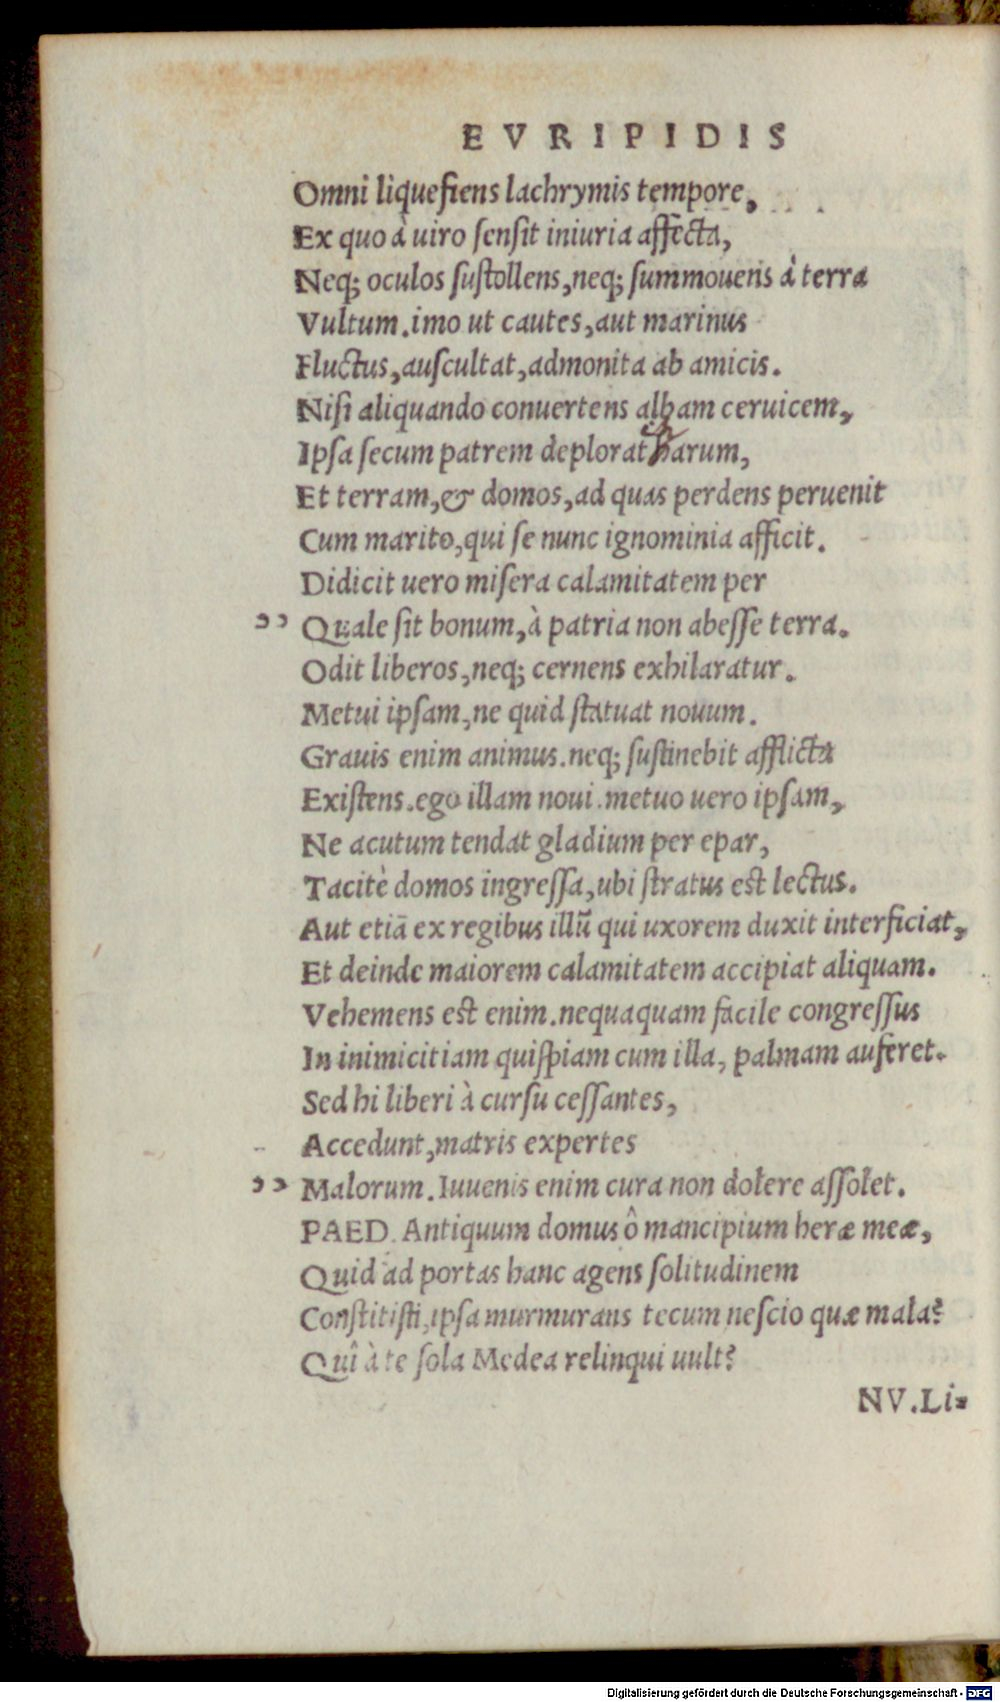 EVRIPIDIS
Omni liquefiens lachrymis tempore,
Ex quo à uiro sensit iniuria affecta,
Neq; oculos sustollens, neq; summouens à terra
Vultum. imo ut cautes, aut marinus
Fluctus, auscultat, admonita ab amicis.
Nisi aliquando conuertens albam ceruicem,
Ipsa secum patrem deplorat harum,
Et terram, & domos, ad quas perdens peruenit
Cum marito, qui se nunc ignominia afficit.
Didicit uero misera calamitatem per
,, Quale sit bonum, à patria non abesse terra.
Odit liberos, neq; cernens exhilaratur.
Metui ipsam, ne quid statuat nouum.
Grauis enim animus. neq; sustinebit afflicta
Existens. ego illam noui. metuo uero ipsam,
Ne acutum tendat gladium per epar,
Tacitè domos ingressa, ubi stratus est lectus.
Aut etiā ex regibus illū qui uxorem duxit interficiat,
Et deinde maiorem calamitatem accipiat aliquam.
Vehemens est enim. nequaquam facile congressus
In inimicitiam quispiam cum illa, palmam auferet.
Sed hi liberi à cursu cessantes,
Accedunt, matris expertes
,, Malorum. Iuuenis enim cura non dolere assolet.
PAED. Antiquum domus ô mancipium heræ meæ,
Quid ad portas hanc agens solitudinem
Constitisti, ipsa murmurans tecum nescio quæ mala?
Quî à te sola Medea relinqui uult?
NV. Li-
Digitalisierung gefördert durch die Deutsche Forschungsgemeinschaft - DFG